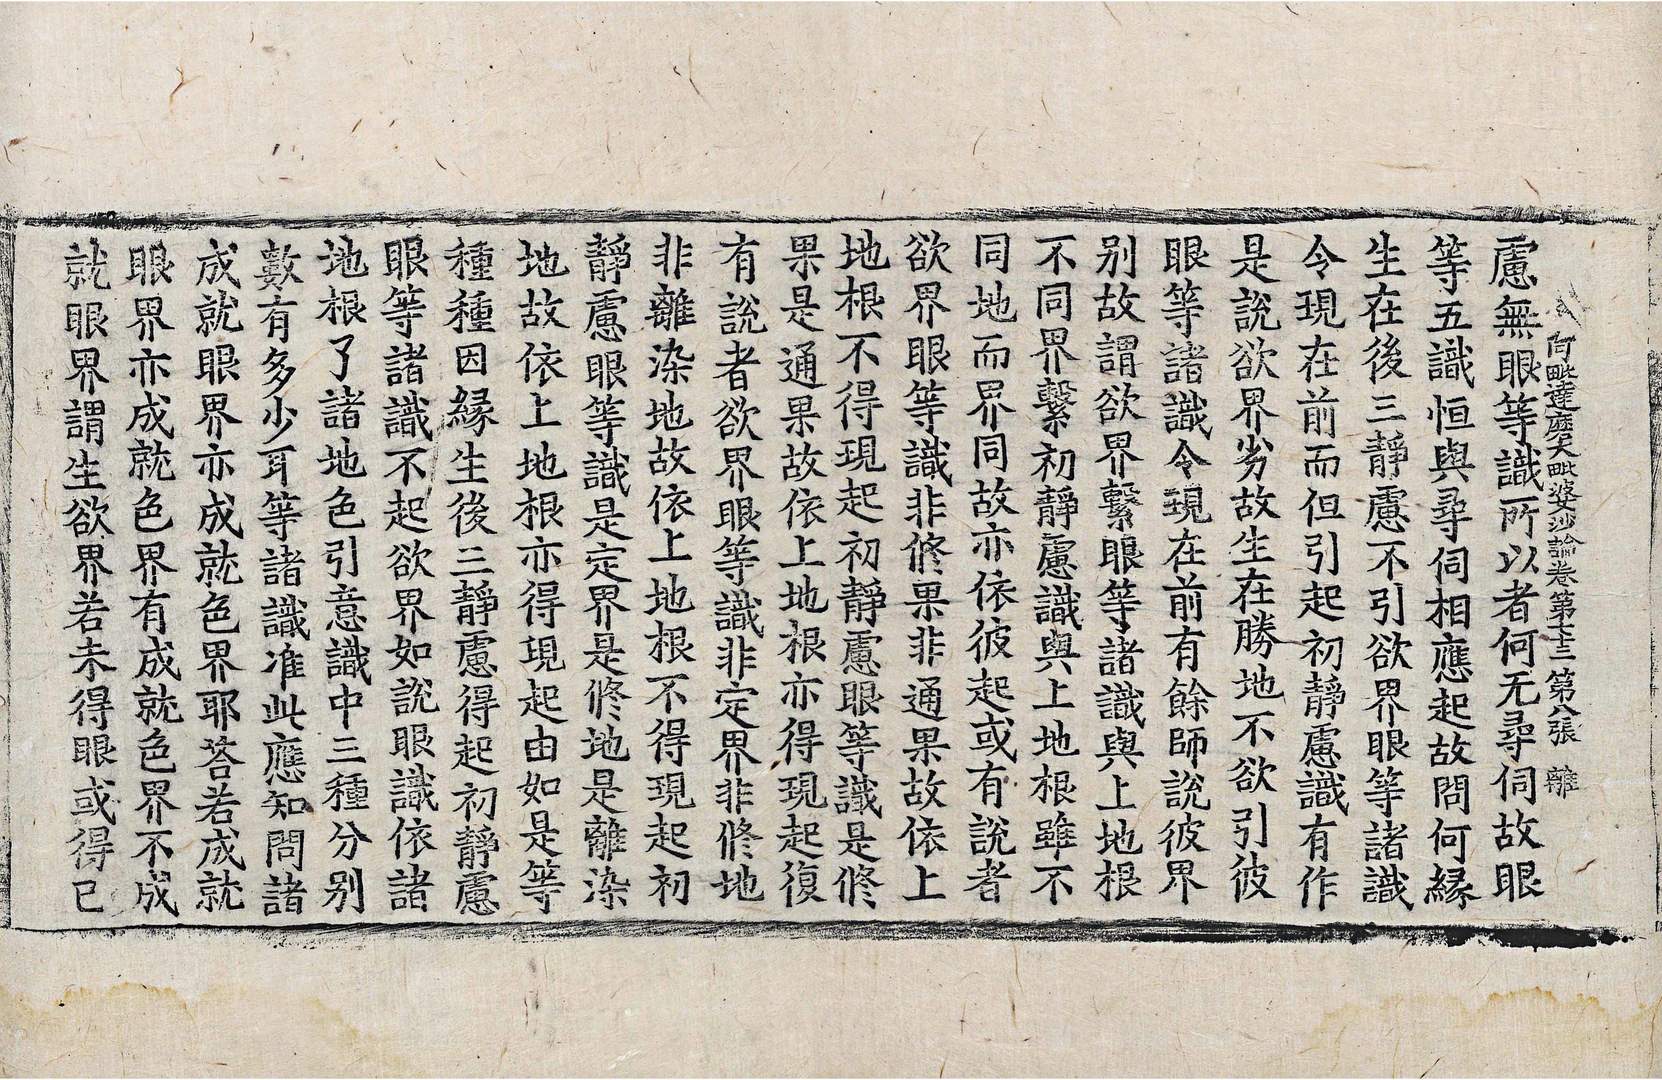 阿毗達磨大毗婆沙論卷第七十三 第八張 離
慮無眼等識所以者何无尋伺故眼
等五識恒與尋伺相應起故問何縁
生在後三靜慮不引欲界眼等諸識
令現在前而但引起初靜慮識有作
是說欲界劣故生在勝地不欲引彼
眼等諸識令現在前有餘師說彼界
別故謂欲界繫眼等諸識與上地根
不同界繫初靜慮識與上地根雖不
同地而界同故亦依彼起或有說者
欲界眼等識非修果非通果故依上
地根不得現起初靜慮眼等識是修
果是通果故依上地根亦得現起復
有說者欲界眼等識非定界非修地
非離染地故依上地根不得現起初
靜慮眼等識是定界是修地是離染
地故依上地根亦得現起由如是等
種種因縁生後三靜慮得起初靜慮
眼等諸識不起欲界如說眼識依諸
地根了諸地色引意識中三種分別
數有多少耳等諸識准此應知問諸
成就眼界亦成就色界耶荅若成就
眼界亦成就色界有成就色界不成
就眼界謂生欲界若未得眼或得已